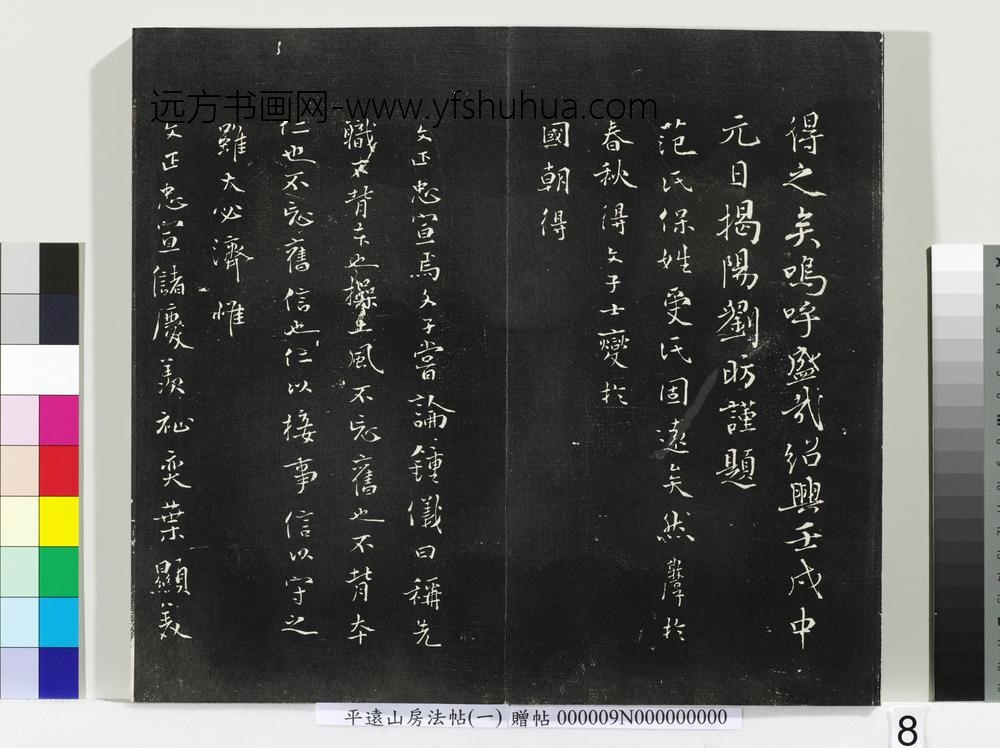 远方书画网-www.yfshuhua.com
得之矣嗚呼盛哉紹興壬戌中
元日揭陽劉昉謹題
范氏保姓受氏固遠矣然於
春秋得文子士燮於
國朝得
文正忠宣焉文子嘗論鍾儀曰稱先
職不背本也操土風不忘舊也不背本
仁也不忘舊信也仁以接事信以守之
雖大必濟惟
文正忠宣儲慶羨祉奕葉顯美
平遠山房法帖(一) 贈帖 000009N000000000
8